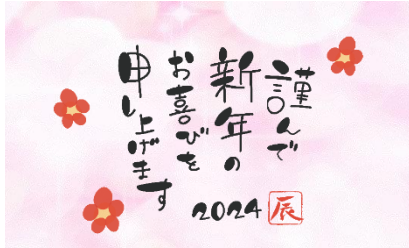 謹んで
新年の
お喜びを
申し上げます
2024 辰